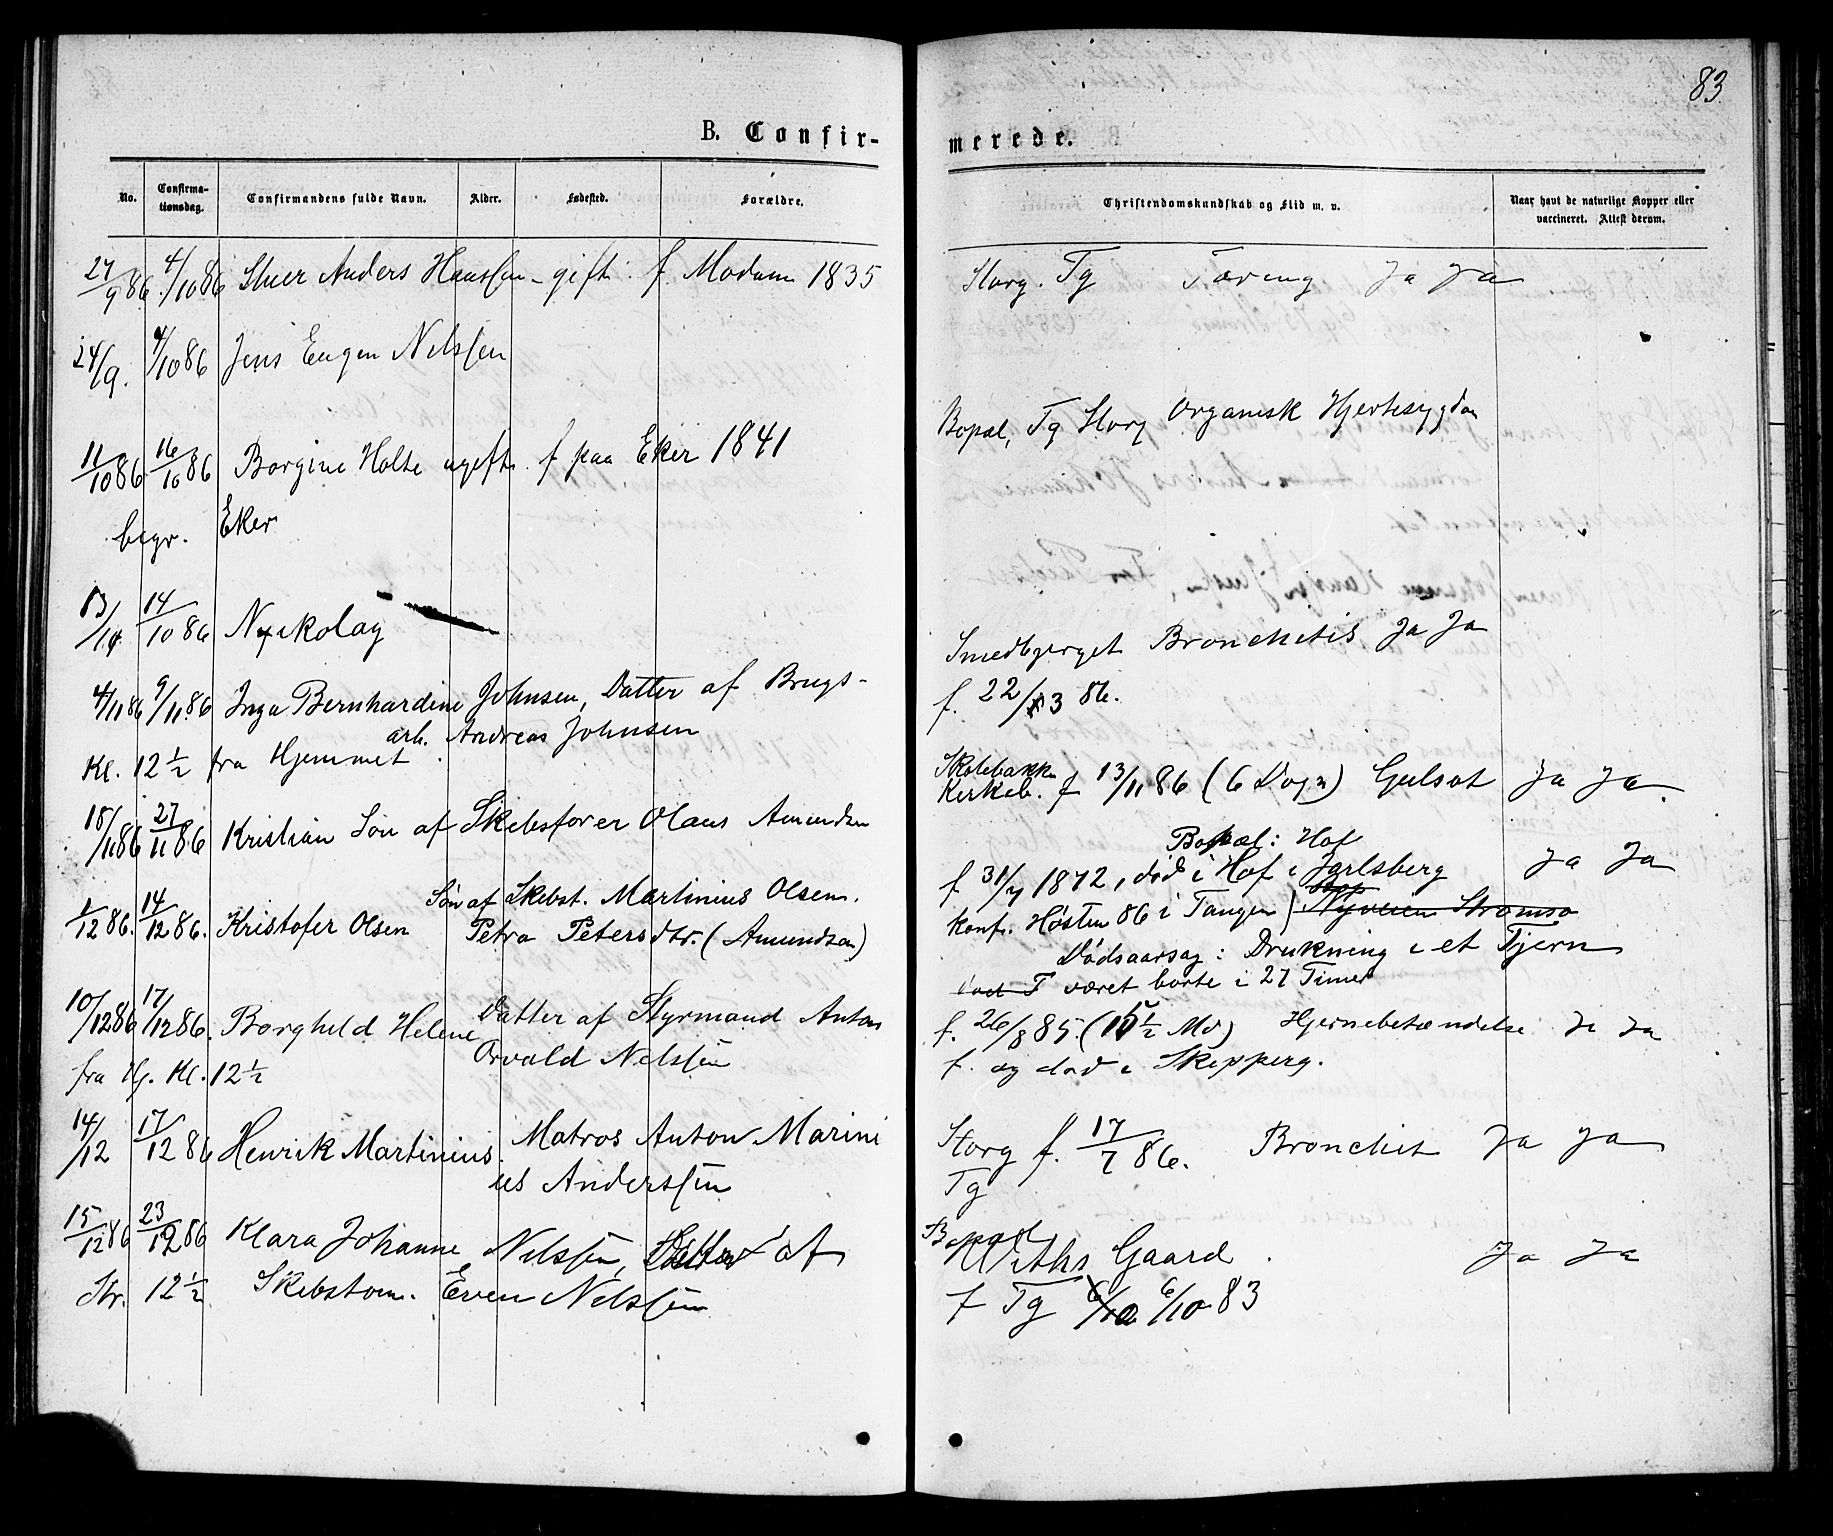 83
B. Confir-
merede.
No.
Confirma-
tionsdag.
Confirmandens fulde Navn.
Alder.
Fødested.
Forældre.
Christendomskundskab og Flid m. v.
Naar havt de naturlige Kopper eller
vaccineret. Attest derom.
27/9 86. 4/10 86 Anders Hanssen gift. f. Modum 1835
24/9. 4/10 86 Jens Eugen Nilssen
11/10 86 16/10 86 Borgine Holte ugift. f paa Eker 1841
begr. Eker
13/10 14/10 86 Nikolay
4/11 86 9/11 86 Inga Bernhardine Johnsen, Datter af Brugs-
arb. Andreas Johnsen
Kl. 12 ½ fra Hjemmet
18/11 86 27/11 86 Kristian Søn af Skibsfører Olaus Amundsen
Søn af Skibst. Martinius Olsen.
1/12 86. 14/12 86. Kristofer Olsen Petra Petersdtr. (Amundsen)
10/12 86 17/12 86. Borghild Helene Datter af Styrmand Anton
Orvald Nilssen
fra Hj. Kl. 12 ½
14/12 17/12 86 Henrik Martinius. Matros Anton Marini
us Anderssen
15/12 86 23/12 86 Klara Johanne Nilssen, Datter af
Kl. 12 ½ Skibstøm. Even Nilssen
Storg. Tg Tæring Ja Ja
Bopæl, Tg Storg Organisk Hjertesygdom
Smedbjerget Bronchitis Ja Ja
f. 22/3 86.
Skolebakken
Kirkeb. f 13/11 86 (6 Døgn) Gulsot Ja Ja.
Bopæl: Hof
f 31/7 1872, død i Hof i Jarlsberg Ja Ja
konf. Høsten 86 i Tangen) Nyveien Strømsø
Dødsaarsag: Drukning i et Tjern
været borte i 27 Timer
f. 26/8 85. (15 ½ Md) Hjernebetændelse Ja Ja
f. og død i Skipperg.
Storg f. 17/7 86. Bronchit Ja Ja
Tg
Bopæl
Withs Gaard. Ja Ja
f Tg 6/10 6/10 83